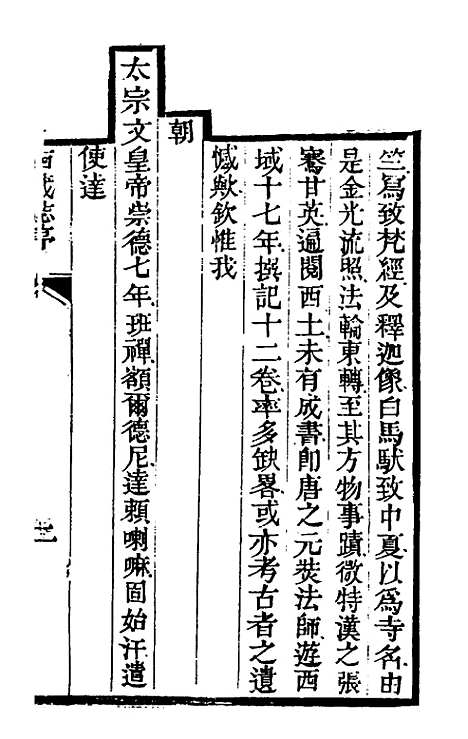 竺爲致梵經及釋迦像白馬馱致中夏以爲寺名由
是金光流照法輪東轉至其方物事蹟微特漢之張
騫甘英遍閱西土未有成書卽唐之元奘法師遊西
域十七年撰記十二卷率多缺畧或亦考古者之遺
憾歟欽惟我
朝
太宗文皇帝崇德七年班禪額爾德尼達賴喇嘛固始汗遣
使達
西藏志序